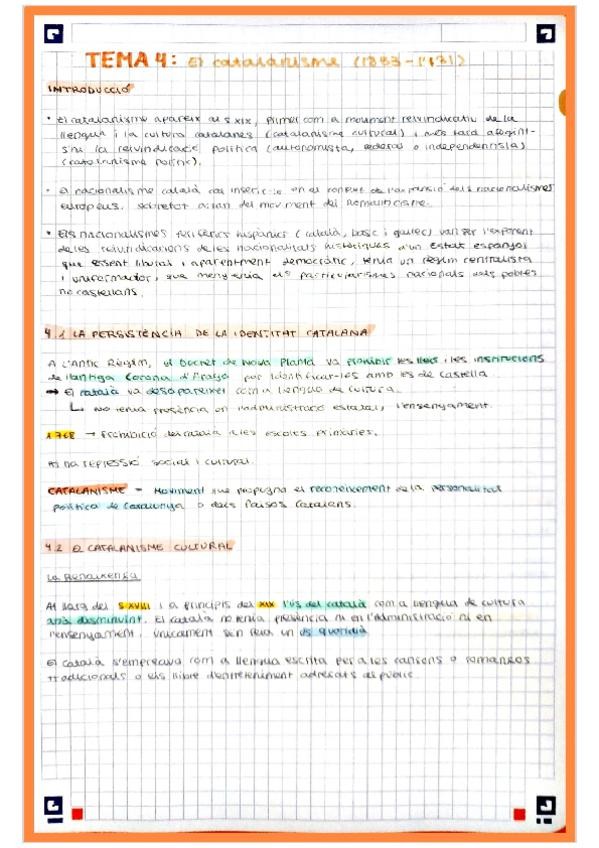 TEMA 4: El catalanisme (1833-1931)
INTRODUCCIÓ
• El catalanisme apareix al s XIX, primer com a moviment reivindicatiu de la
llengua i la cultura catalanes (catalanisme cultural) i més tard afegint-
s'hi la reivindicació política (autonomista, federal o independentista)
(catalanisme polític).
• El nacionalisme català cal inserir-lo en el context de l'expansió dels nacionalismes
europeus, sobretot arran del moviment del Romanticisme.
• Els nacionalismes perifèrics hispànics (català, basc i gallec) van ser l'exponent
de les reivindicacions de les nacionalitats històriques d'un Estat espanyol
que essent liberal i aparentment democràtic, tenia un règim centralista
i uniformador, que menystenia els particularismes nacionals dels pobles
no castellans.
4.1 LA PERSISTÈNCIA DE LA IDENTITAT CATALANA
A l'Antic Règim, el Decret de Nova Planta va prohibir les lleis i les institucions
de l'antiga Corona d'Aragó per identificar-les amb les de Castella
→ El català va desaparèixer com a llengua de cultura.
↳ No tenia presència en administració estatal, l'ensenyament.
1768 → Prohibició del català a les escoles primàries.
Hi ha repressió social i cultural.
CATALANISME - Moviment que propugna el reconeixement de la personalitat
política de Catalunya o dels Països Catalans.
4.2 El CATALANISME CULTURAL
La Renaixença
Al llarg del s XVIII i a principis del XIX l'ús del català com a llengua de cultura
anà disminuint. El català no tenia presència ni en l'administració ni en
l'ensenyament, únicament se'n feia un ús quotidià
El català s'emprava com a llengua escrita per a les cançons o romanços
tradicionals o els llibre d'entreteniment adreçats al públic.